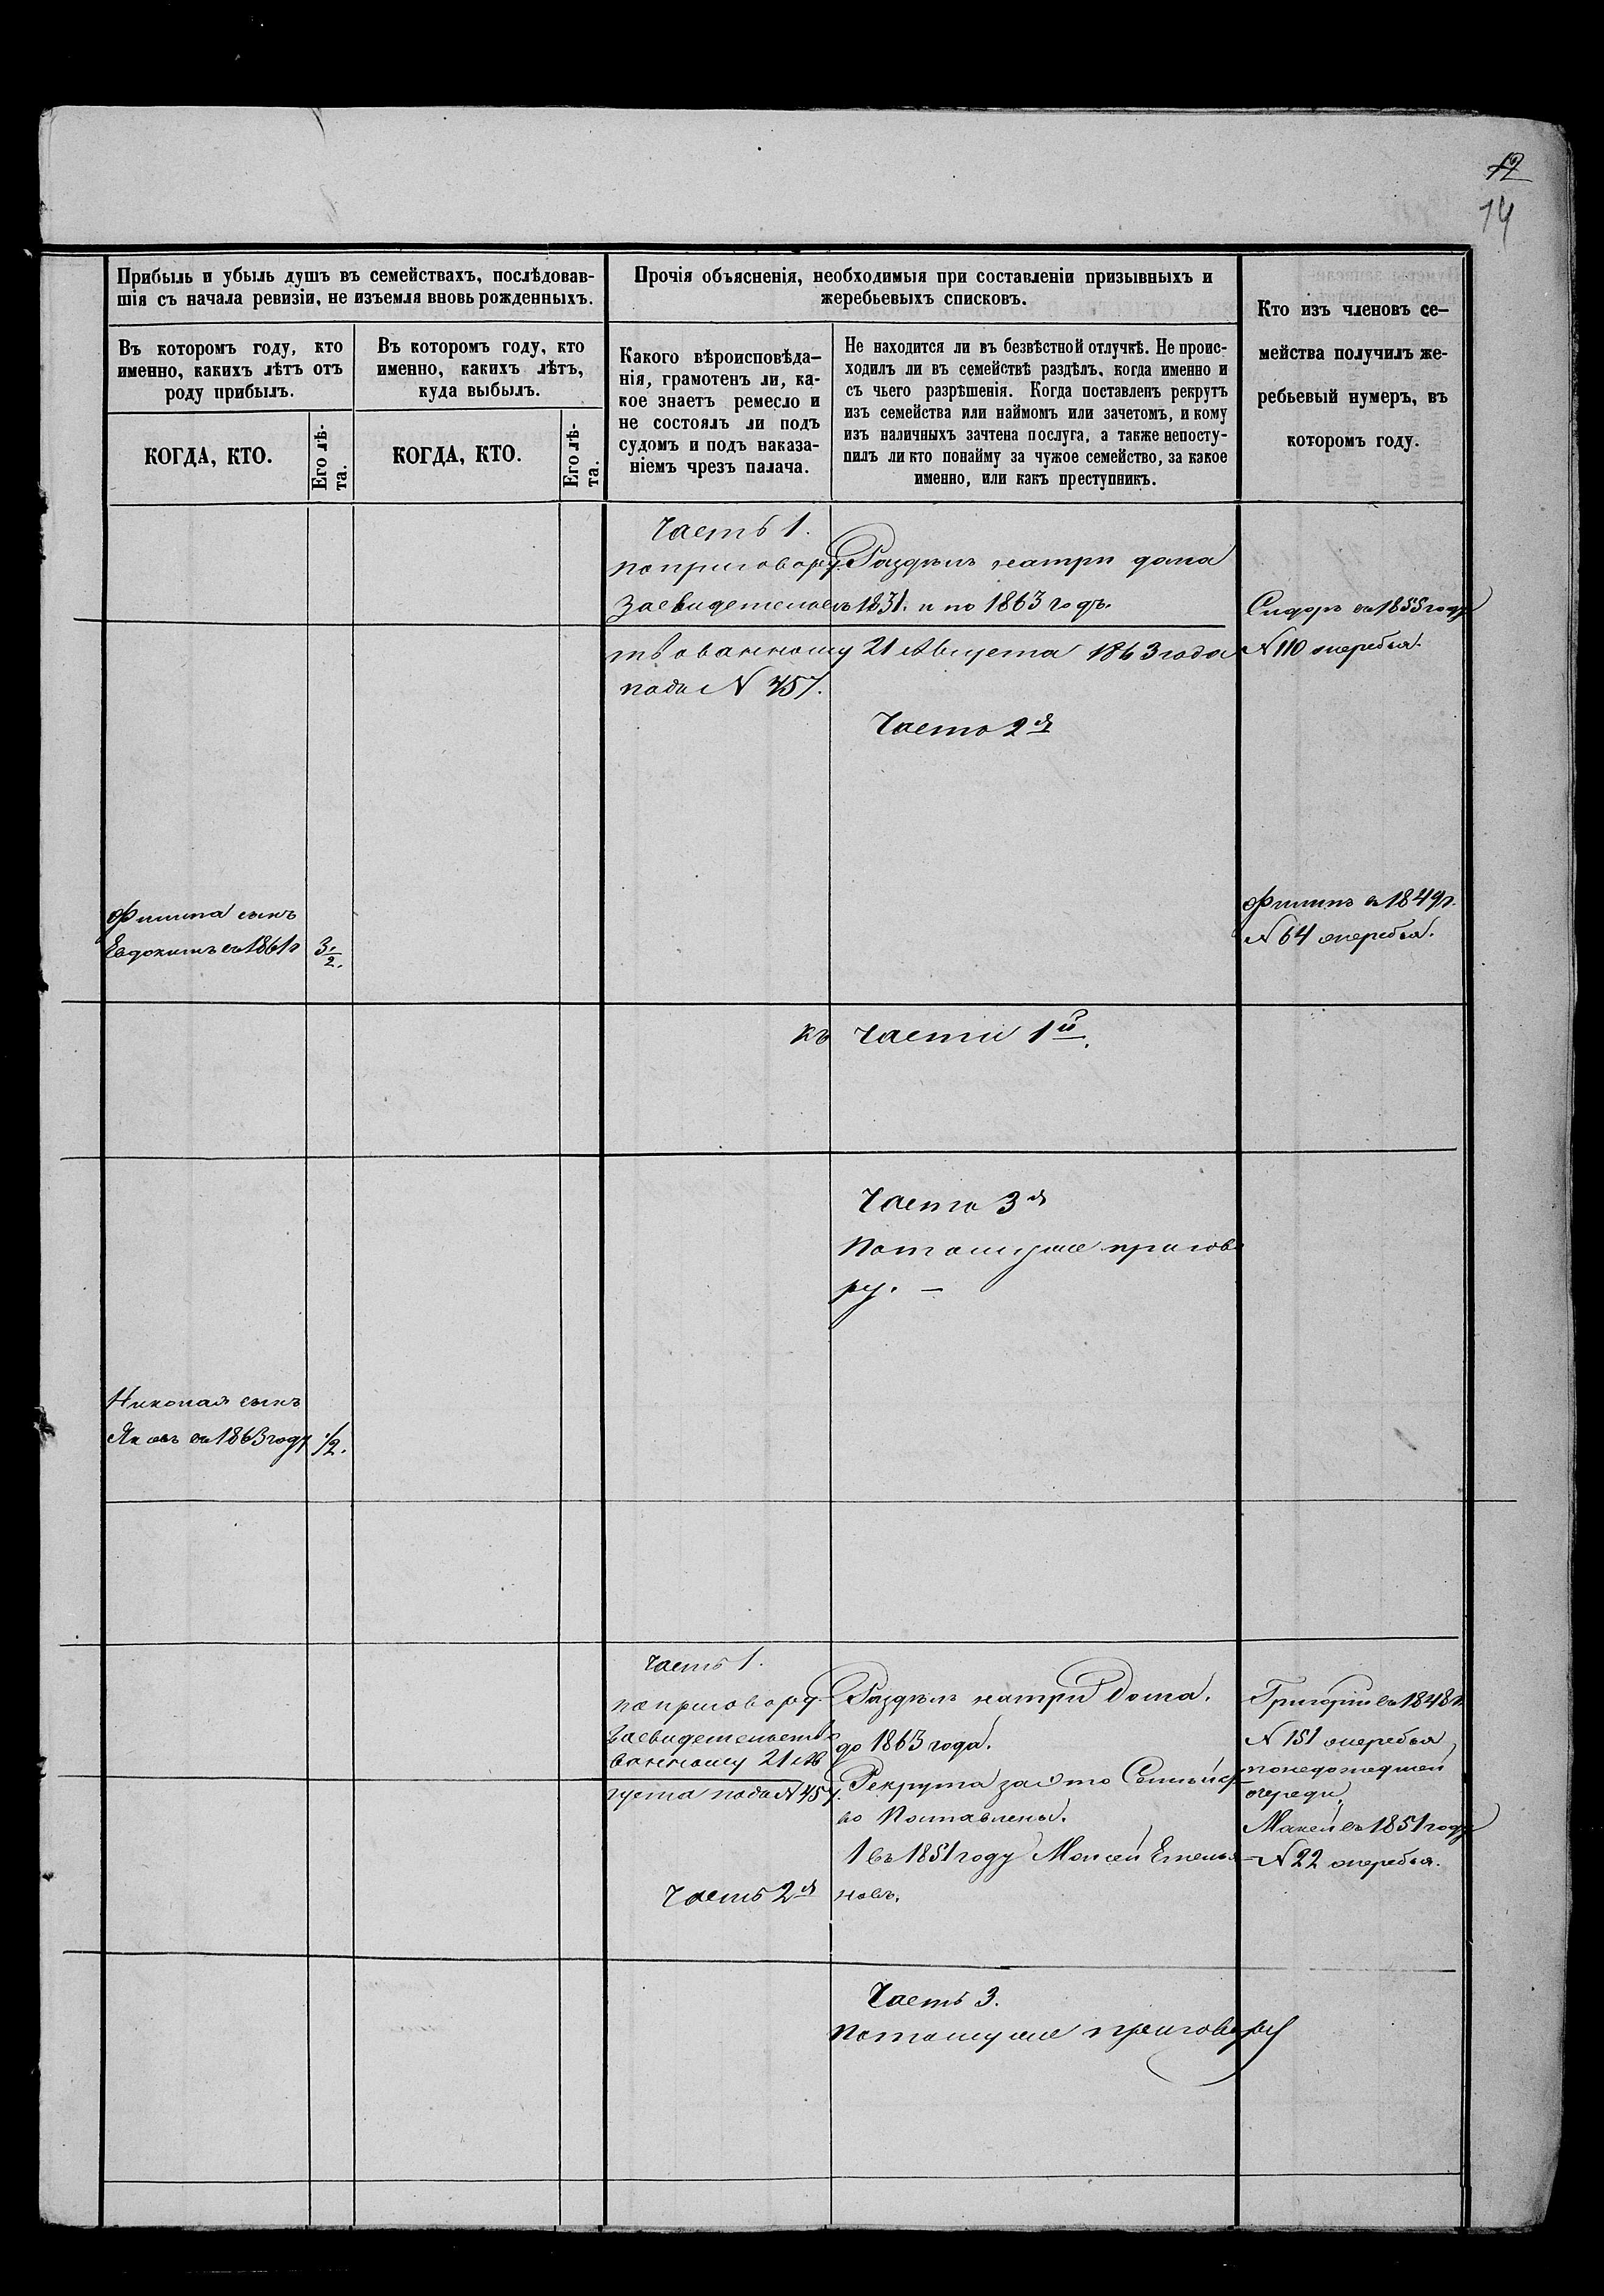 12
14
Прибыль и убыль душъ въ семействахъ, послѣдовав-
шія съ начала ревизіи, не изъемля вновь рожденныхъ.
Въ которомъ году, кто
именно, какихъ лѣтъ отъ
роду прибылъ.
КОГДА, КТО.
Его лѣ-
та.
Въ которомъ году, кто
именно, какихъ лѣтъ,
куда выбылъ.
КОГДА, КТО.
Его лѣ-
та.
Прочія объясненія, необходимыя при составленіи призывныхъ и
жеребьевыхъ списковъ.
Какого вѣроисповѣда-
нія, грамотенъ ли, ка-
кое знаетъ ремесло и
не состоялъ ли подъ
судомъ и подъ наказа-
ніемъ чрезъ палача.
Не находится ли въ безвѣстной отлучкѣ. Не проис-
ходилъ ли въ семействѣ раздѣлъ, когда именно и
съ чьего разрѣшенія. Когда поставленъ рекрутъ
изъ семейства или наймомъ или зачетомъ, и кому
изъ наличныхъ зачтена послуга, а также непосту-
пилъ ли кто понайму за чужое семейство, за какое
именно, или какъ преступникъ.
Кто изъ членовъ се-
мейства получилъ же-
ребьевый нумеръ, въ
которомъ году.
Часть 1.
по приговору Раздѣлъ натри дома
Засвидетельс въ 1831. и по 1863 годъ.
твованному 21 Августа 1863 года
подъ N 457.
Сидоръ въ 1855 году
N 110 жеребья.
Часть 2я
Филипа сынъ
Евдокимъ въ 1861 г 3 1/2.
Филипъ въ 1849 г.
N 64 жеребья.
къ Части 1й.
Часть 3я
Потомуже пригово
ру. —
Николая сынъ
Яковъ въ 1863 году 1/2.
Часть 1.
по приговору
Засвидетельство
ванному 21 Ав
густа подъ N 457.
Часть 2я
Раздѣлъ натри Дома.
до 1863 года.
Рекрута за это Семьйст
во Поставлены.
1 въ 1851 году Моисей Емелья
новъ.
Григорій въ 1848 г.
N 151 жеребья
понедошедшей
очереди.
Макей въ 1851 году
N 22 жеребья.
Часть 3.
Потомуже приговору